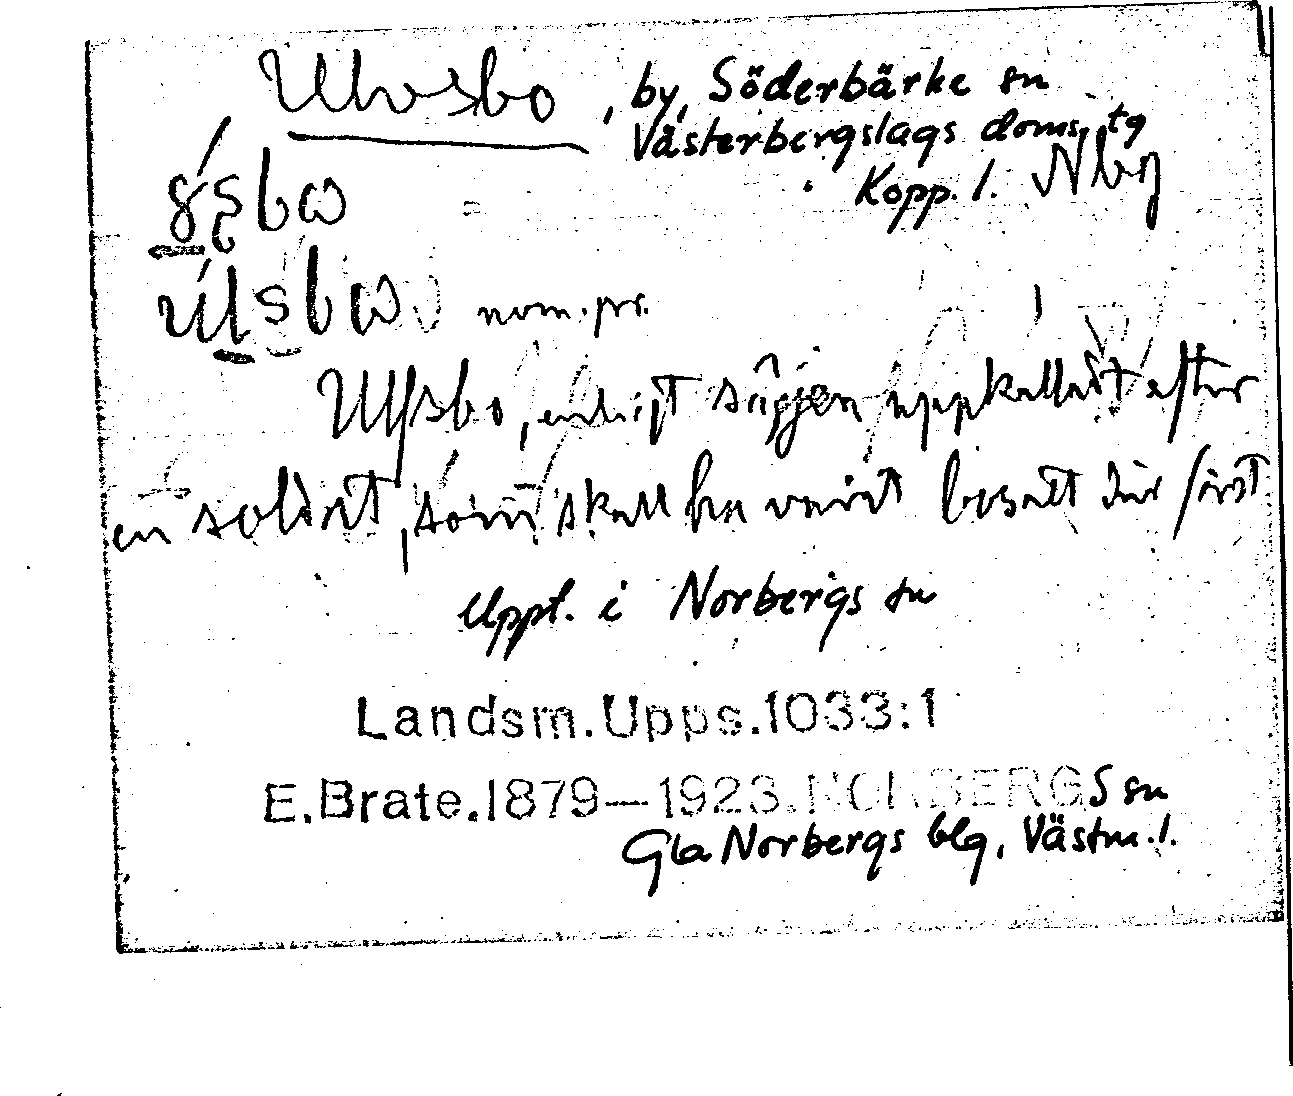 Ulvsbo, by, Söderbärke sn
Västerbergslags doms. tg
Kopp. l. Nbg
úlsbω nom. pr.
Ulfsbo, enligt sägen uppkalladt efter
en soldat, som skall ha varit bosatt där först
Uppt. i Norbergs sn
Landsm. Upps. 1033:1
E. Brate. 1879–1923. NORBERGS sn
Gla Norbergs blg, Västm. l.